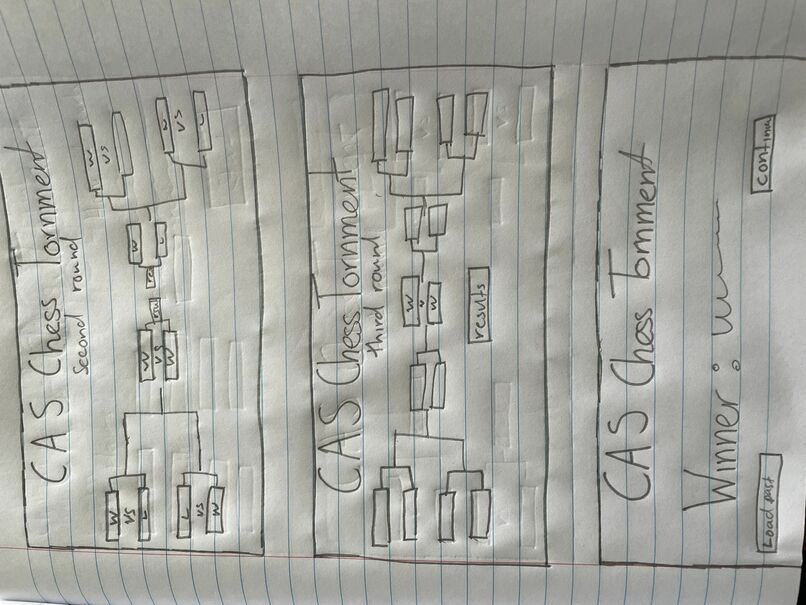 CAS Chess Tornment
Second round
W
vs
L
L
vs
W
W
vs
W
W
L
W
vs
vs
L
CAS Chess Tornment
third round
W
v
W
results
CAS Chess Tornment
Winner :
Load past
continu